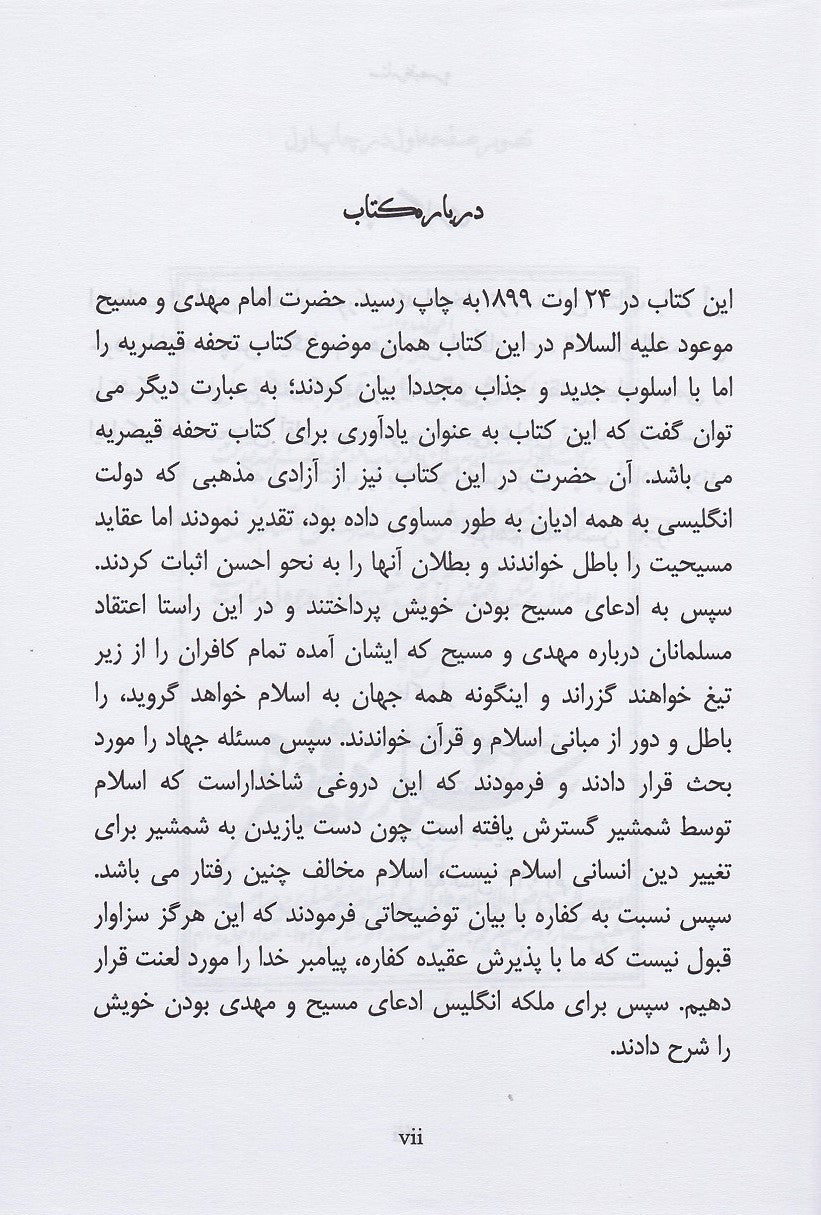 درباره کتاب
این کتاب در ۲۴ اوت ۱۸۹۹به چاپ رسید. حضرت امام مهدی و مسیح
موعود علیه السلام در این کتاب همان موضوع کتاب تحفه قیصریه را
اما با اسلوب جدید و جذاب مجددا بیان کردند؛ به عبارت دیگر می
توان گفت که این کتاب به عنوان یادآوری برای کتاب تحفه قیصریه
می باشد. آن حضرت در این کتاب نیز از آزادی مذهبی که دولت
انگلیسی به همه ادیان به طور مساوی داده بود، تقدیر نمودند اما عقاید
مسیحیت را باطل خواندند و بطلان آنها را به نحو احسن اثبات کردند.
سپس به ادعای مسیح بودن خویش پرداختند و در این راستا اعتقاد
مسلمانان درباره مهدی و مسیح که ایشان آمده تمام کافران را از زیر
تیغ خواهند گزراند و اینگونه همه جهان به اسلام خواهد گروید، را
باطل و دور از مبانی اسلام و قرآن خواندند. سپس مسئله جهاد را مورد
بحث قرار دادند و فرمودند که این دروغی شاخداراست که اسلام
توسط شمشیر گسترش یافته است چون دست یازیدن به شمشیر برای
تغییر دین انسانی اسلام نیست، اسلام مخالف چنین رفتار می باشد.
سپس نسبت به کفاره با بیان توضیحاتی فرمودند که این هرگز سزاوار
قبول نیست که ما با پذیرش عقیده کفاره، پیامبر خدا را مورد لعنت قرار
دهیم. سپس برای ملکه انگلیس ادعای مسیح و مهدی بودن خویش
را شرح دادند.
vii